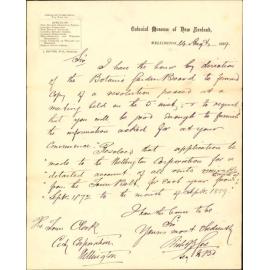 Colonial Museum of New Zealand,
WELLINGTON, 24 Augt 1889.
Sir
I have the honor by direction
of the Botanic Garden Board to forward
copy of a resolution passed at a
meeting held on the inst, & to request
that you will be good enough to furnish
the information asked for at your
convenience. Resolved that application be
made to the Wellington Corporation for a
detailed account of all rents received
from the Town Belt, for each year from
Sept. 1872 to the month of Sept. 1889.
I have the honor to be
Sir
Yours most obediently
The Town Clerk
City Corporation
Wellington